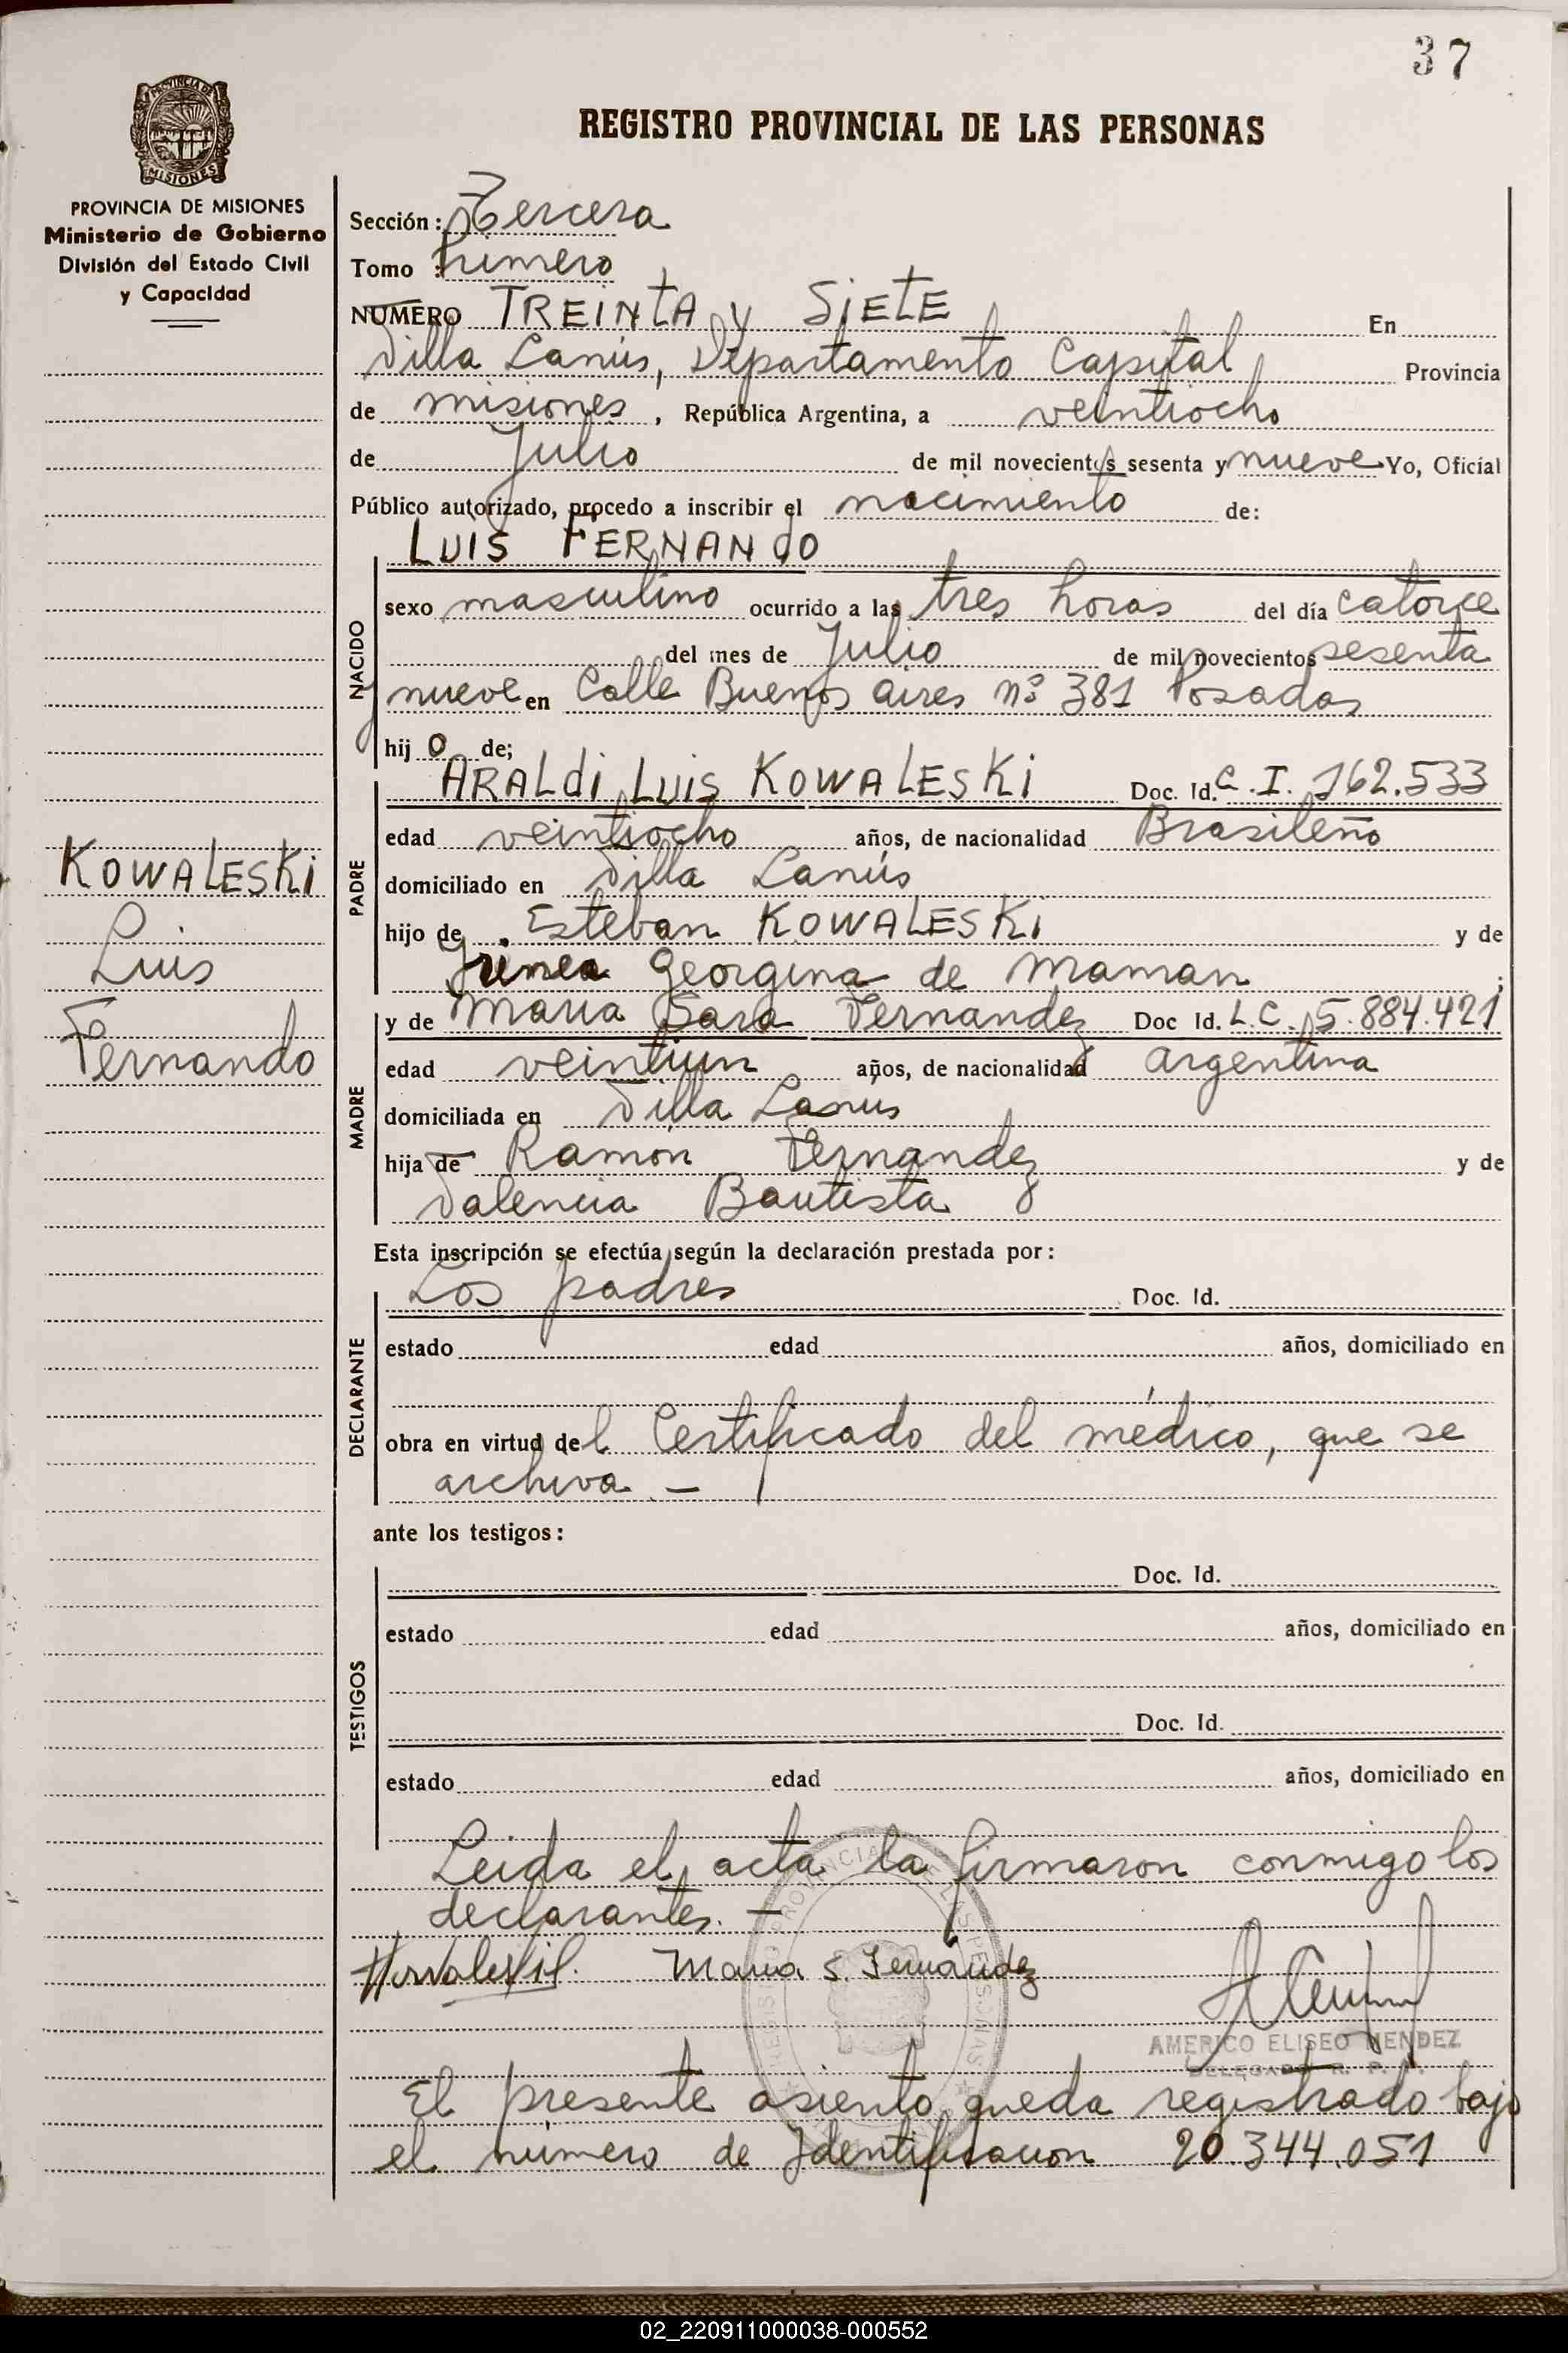 37
REGISTRO PROVINCIAL DE LAS PERSONAS
PROVINCIA DE MISIONES
Ministerio de Gobierno
División del Estado Civil
y Capacidad
Sección: Tercera
Tomo: Primero
NUMERO TREINTA y SIETE En
Villa Lanús, Departamento Capital Provincia
de misiones, República Argentina, a veintiocho
de Julio de mil novecientos sesenta y nueve Yo, Oficial
Público autorizado, procedo a inscribir el nacimiento de:
LUIS FERNANDO
NACIDO
sexo masculino ocurrido a las tres horas del día catorce
del mes de Julio de mil novecientos sesenta
y nueve en Calle Buenos Aires nº 381 Posadas
hij o de;
ARALDI LUIS KOWALESKI Doc. Id. C.I. 162.533
PADRE
edad veintiocho años, de nacionalidad Brasileño
domiciliado en Villa Lanús
hijo de Esteban KOWALESKI y de
Georgina de Maman;
KOWALESKI
Luis
Fernando
y de Maria Sara Fernandez Doc Id. L.C. 5.884.421
MADRE
edad veintiun años, de nacionalidad argentina
domiciliada en Villa Lanus
hija de Ramón Fernandez y de
Valencia Bautista
Esta inscripción se efectúa según la declaración prestada por:
Los padres Doc. Id.
DECLARANTE
estado edad años, domiciliado en
obra en virtud del Certificado del médico, que se
archiva. —
ante los testigos:
TESTIGOS
Doc. Id.
estado edad años, domiciliado en
Doc. Id.
estado edad años, domiciliado en
Leida el acta la firmaron conmigo los
declarantes. —
Maria S. Fernández
AMERICO ELISEO MENDEZ
DELEGADO R. P. P.
El presente asiento queda registrado bajo
el número de Identificacion 20.344.051
02_220911000038-000552